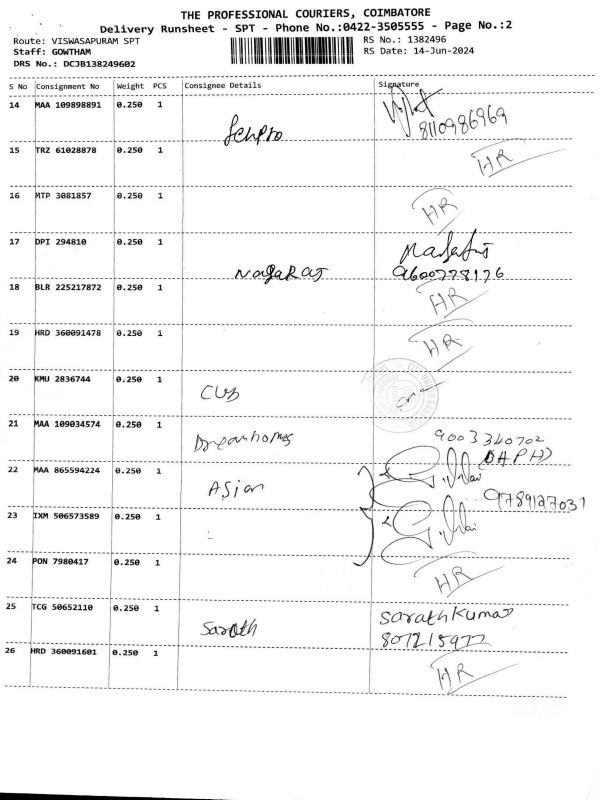 THE PROFESSIONAL COURIERS, COIMBATORE
Delivery Runsheet - SPT - Phone No.:0422-3505555 - Page No.:2
Route: VISWASAPURAM SPT RS No.: 1382496
Staff: GOWTHAM RS Date: 14-Jun-2024
DRS No.: DCJB138249602
S No Consignment No Weight PCS Consignee Details Signature
14 MAA 109898891 0.250 1
8110986969
15 TRZ 61028878 0.250 1 HR
16 MTP 3081857 0.250 1 HR
17 DPI 294810 0.250 1
NagaRaj 9600778176
18 BLR 225217872 0.250 1 HR
19 HRD 360091478 0.250 1 HR
20 KMU 2836744 0.250 1 CUB
21 MAA 109034574 0.250 1 Dreamhomes 9003340702
22 MAA 865594224 0.250 1 Asian
9789127031
23 IXM 506573589 0.250 1
24 PON 7980417 0.250 1 HR
25 TCG 50652110 0.250 1 Sarathkumar
Sarath 807215977
26 HRD 360091601 0.250 1 HR